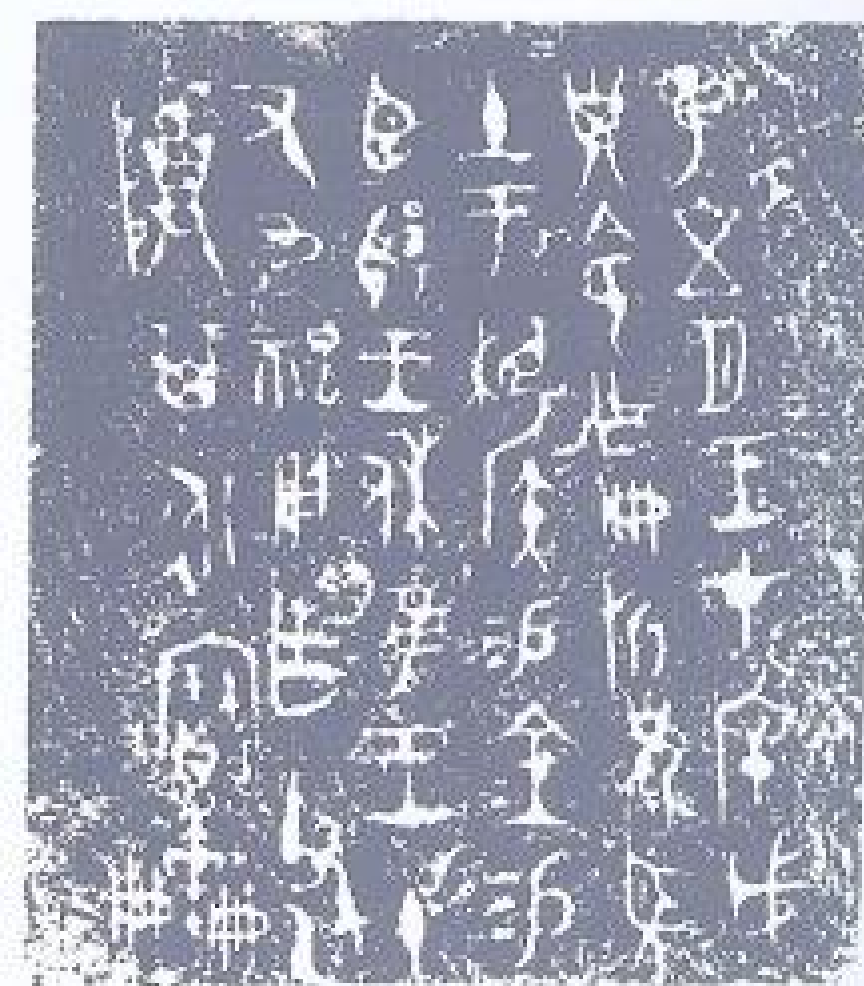 隹五月王才斥戊
子令乍冊折兄望
土于相侯易金易
臣揚王休隹王十
又九祀用乍父乙
尊其永寶